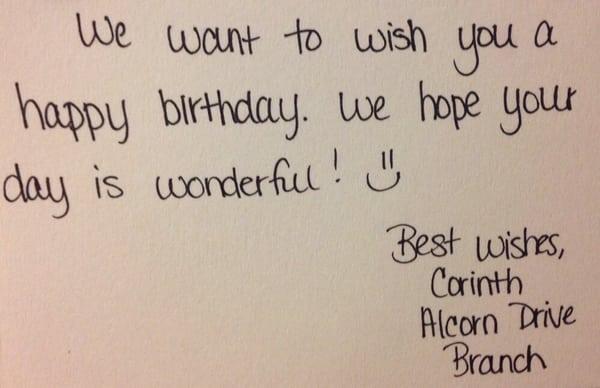 We want to wish you a
happy birthday. We hope your
day is wonderful! :)
Best wishes,
Corinth
Alcorn Drive
Branch